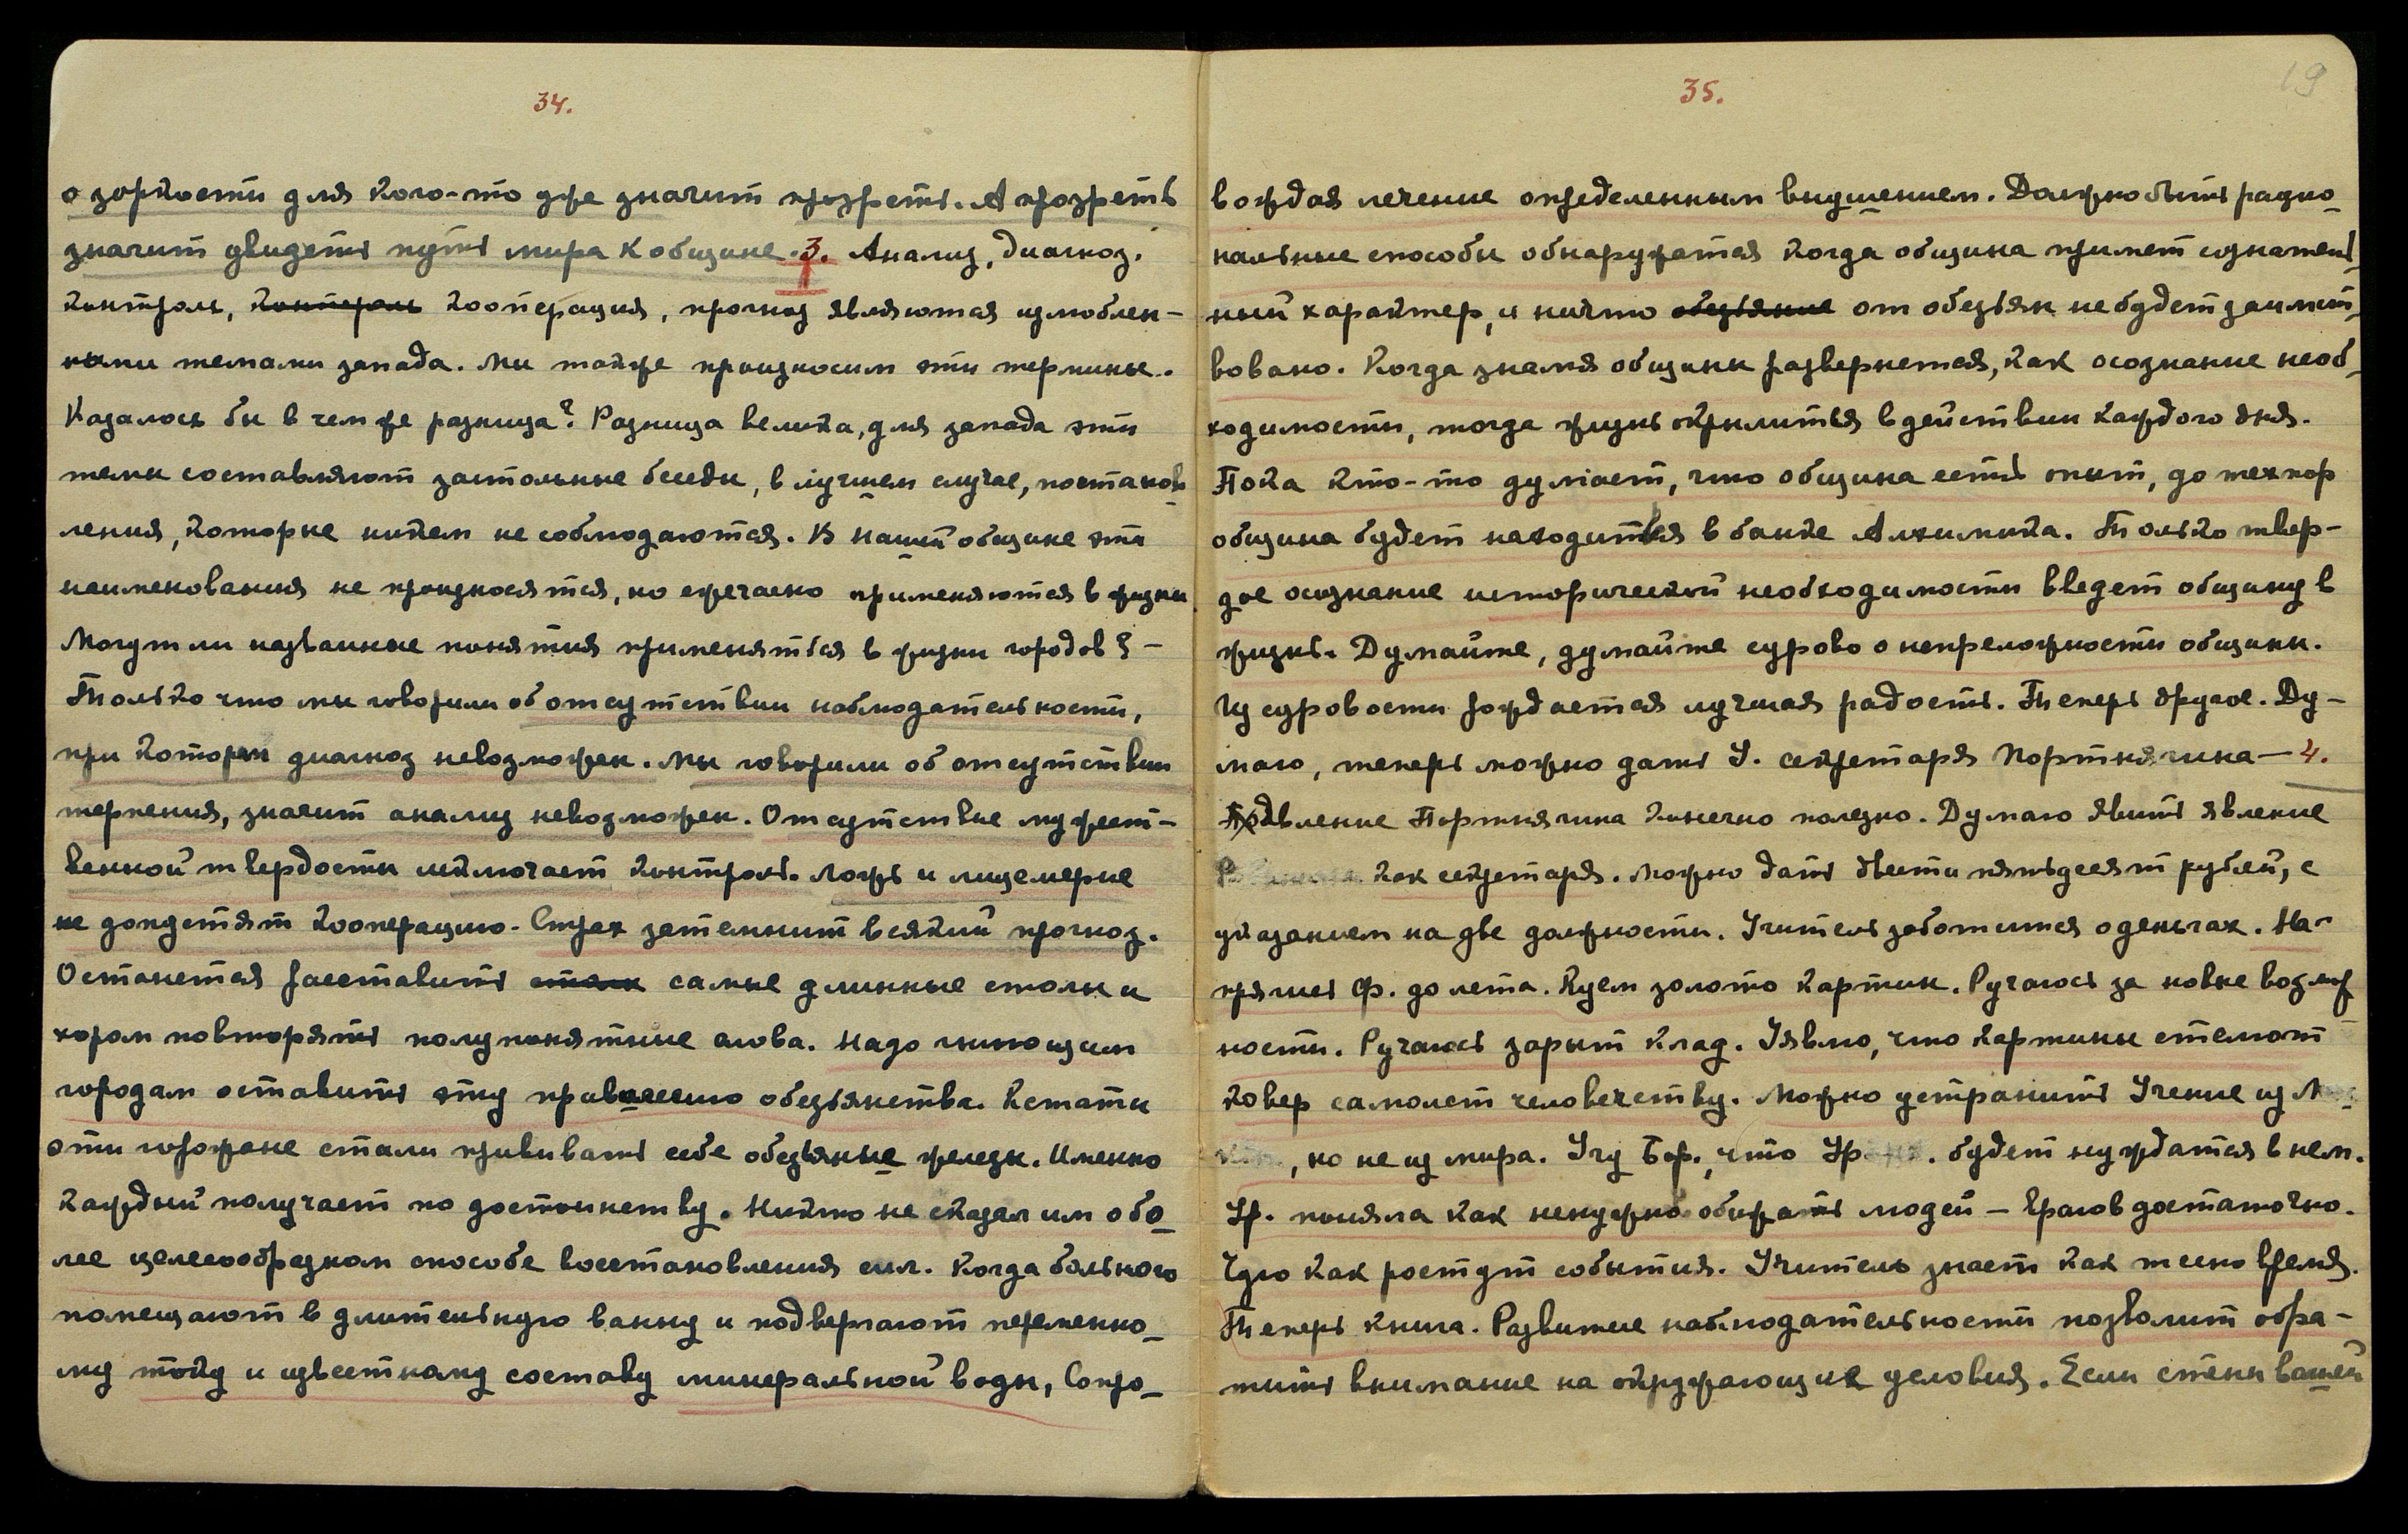 34.
о зоркости для кого-то уже значит прозреть. А прозреть
значит увидеть путь мира к общине. 3. Анализ, диагноз,
контроль, контроль кооперация, прогноз являются излюблен-
ными темами запада. Мы также произносим эти термины.
Казалось бы в чем же разница? Разница велика, для запада эти
темы составляют застольные беседы, в лучшем случае, постанов
ления, которые никем не соблюдаются. В нашей общине эти
наименования не произносятся, но ежечасно применяются в жизни
Могут ли названные понятия применяться в жизни городов? -
Только что мы говорили об отсутствии наблюдательности,
при которы диагноз невозможен. Мы говорили об отсутствии
терпения, значит анализ невозможен. Отсутствие мужест-
венной твердости исключает контроль. Ложь и лицемерие
не допустят кооперацию. Страх затемнит всякий прогноз.
Останется расставить самые длинные столы и
хором повторять полупонятные слова. Надо гниющим
городам оставить эту обезьянства. Кстати
эти горожане стали прививать себе обезьяные железы. Именно
каждый получает по достоинству. Никто не сказал им о бо_
лее целесообразном способе восстановления сил. Когда больного
помещают в длительную ванну и подвергают переменно_
му току и известному составу минеральной воды, Сопро_
35.
19
вождая лечение определенным внушением. Должно быть рацио_
нальные способы обнаружатся когда община примет сознатель_
ный характер, и ничто обезьяние от обезьян не будет заимст_
вовано. Когда знамя общины развернется, как осознание необ_
ходимости, тогда жизнь окрылиться в действии каждого дня.
Пока кто-то думает, что община есть опыт, до тех пор
община будет находиться в банке Алхимика. Только твер-
дое осознание исторической необходимости введет общину в
жизнь. Думайте, думайте сурово о непреложности общины.
Из суровости рождается лучшая радость. Теперь другое. Ду-
маю, теперь можно дать У. секретаря Портнягина — 4.
явление Портнягина конечно полезно. Думаю явить явление
как секретаря. Можно дать двести пятьдесят рублей, с
указанием на две должности. Учитель заботится о деньгах. На-
пряшеь Ф. до лета. Куем золото картин. Ручаюсь за новые возмож
ности. Ручаюсь зарыт клад. Уявлю, что картины стелют
ковер самолет человечеству. Можно устранить Учение из
, но не из мира. Учу Бор., что Ур . будет нуждатся в нем.
Ур. поняла как ненужно обижать людей — врагов достаточно.
Чую как ростут события. Учитель знает как тесно время.
Теперь книга. Развитие наблюдательности позволит обра-
тить внимание на окружающие условия. Если стены вашей